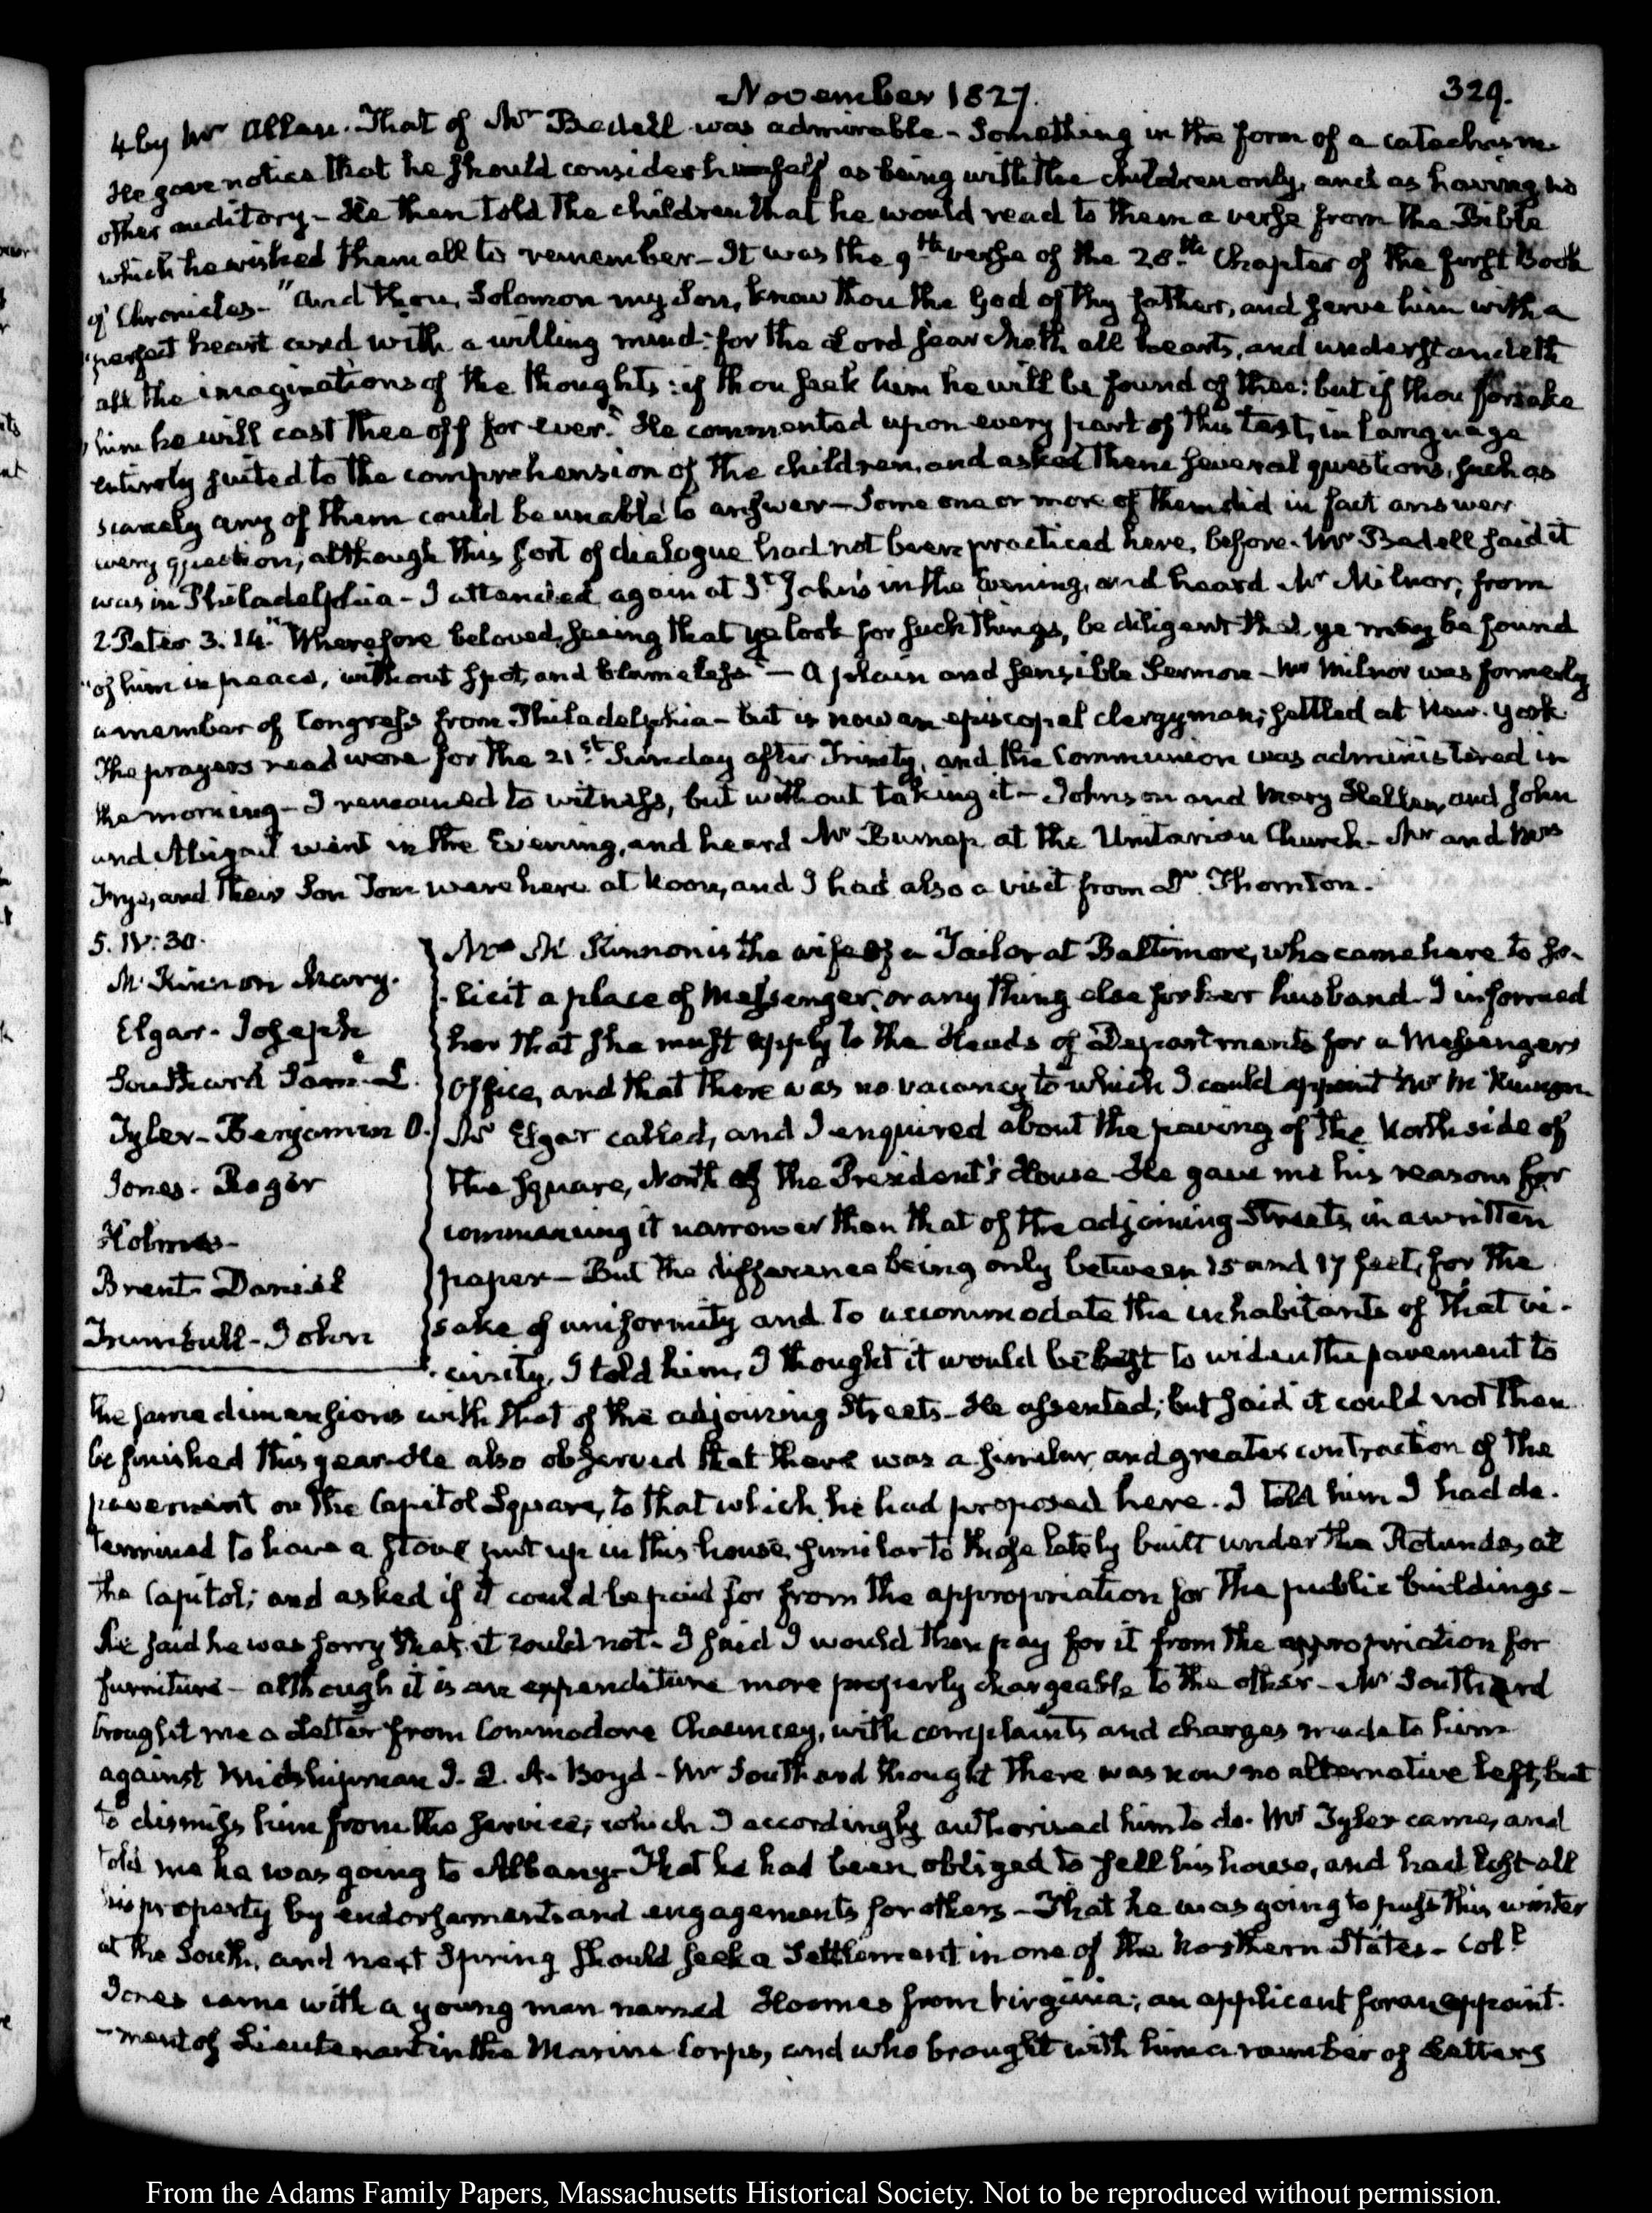 November 1827.
329.
4 by Mr Allan. That of Mr Bedell was admirable - Something in the form of a catechism.
He gave notice that he should consider himself as being with the children only, and as having no
other auditory - He then told the children that he would read to them a verse from the Bible
which he wished them all to remember - It was the 9th verse of the 28th Chapter of the first Book
of Chronicles - "And thou, Solomon my Son, know thou the God of thy father, and serve him with a
"perfect heart and with a willing mind: for the Lord searcheth all hearts, and understandeth
all the imaginations of the thoughts: if thou seek him he will be found of thee: but if thou forsake
"him he will cast thee off for ever." He commented upon every part of this text, in language
entirely suited to the comprehension of the children, and asked them several questions, such as
scarcely any of them could be unable to answer - Some one or more of them did in fact answer
every question; although this sort of dialogue had not been practiced here, before. Mr Bedell said it
was in Philadelphia - I attended again at St. John's in the Evening, and heard Mr Milnor, from
2 Peter 3. 14. "Wherefore beloved, seeing that ye look for such things, be diligent that ye may be found
"of him in peace, without spot, and blameless" - A plain and sensible Sermon - Mr Milnor was formerly
a member of Congress from Philadelphia - but is now an episcopal clergyman; settled at New-York.
The prayers read were for the 21st Sunday after Trinity, and the Communion was administered in
the morning - I remained to witness, but without taking it - Johnson and Mary Hellen, and John
and Abigail went in the Evening, and heard Mr Burnap at the Unitarian Church - Mr and Mrs
Frye, and their Son Tom were here at Noon, and I had also a visit from Dr. Thornton.
5. IV: 30.
McKinnon Mary.
Elgar - Joseph
Southard Saml. L.
Tyler - Benjamin O.
Jones - Roger
Holmes -
Brent - Daniel
Trumbull - John
Mrs McKinnon is the wife of a Tailor at Baltimore, who came here to so-
-licit a place of Messenger, or any thing else for her husband - I informed
her that she must apply to the Heads of Departments for a Messengers
Office, and that there was no vacancy to which I could appoint Mr McKinnon.
Mr Elgar called, and I enquired about the paving of the North side of
the Square, North of the President's House - He gave me his reasons for
commencing it narrower than that of the adjoining Streets, in a written
paper - But the difference being only between 15 and 17 feet, for the
sake of uniformity and to accommodate the inhabitants of that vi-
-cinity, I told him, I thought it would be best to widen the pavement to
the same dimensions with that of the adjoining Streets - He assented; but said it could not then
be finished this year - He also observed that there was a similar, and greater contraction of the
pavement on the Capitol Square, to that which he had proposed here. I told him I had de-
termined to have a stove put up in this house, similar to those lately built under the Rotunda, at
the Capitol; and asked if it could be paid for from the appropriation for the public buildings -
He said he was sorry that it could not - I said I would then pay for it from the appropriation for
furniture - although it is an expenditure more properly chargeable to the other - Mr Southard
brought me a Letter from Commodore Chauncey, with complaints and charges made to him
against Midshipman J. Q. A. Boyd - Mr Southard thought there was now no alternative left, but
to dismiss him from the service; which I accordingly authorised him to do. Mr Tyler came, and
told me he was going to Albany - That he had been obliged to sell his house, and had lost all
his property by endorsements and engagements for others - That he was going to pass this winter
at the South, and next Spring should seek a Settlement in one of the Northern States - Coll.
Jones came with a young man named Hoomes from Virginia; an applicant for an appoint-
-ment of Lieutenant in the Marine Corps, and who brought with him a number of Letters
From the Adams Family Papers, Massachusetts Historical Society. Not to be reproduced without permission.